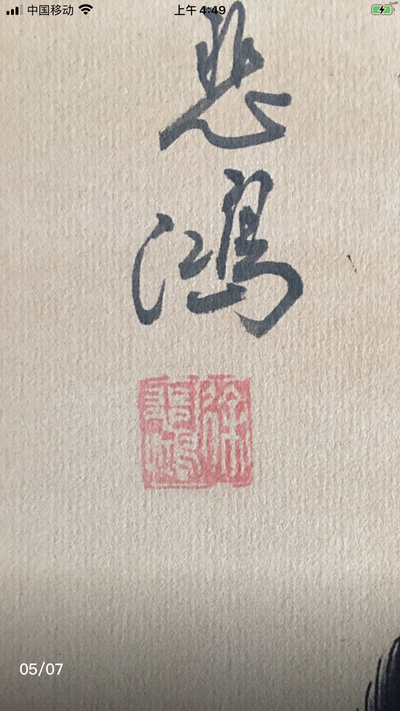 中国移动
上午4:49
悲
鸿
徐
悲鸿
05/07